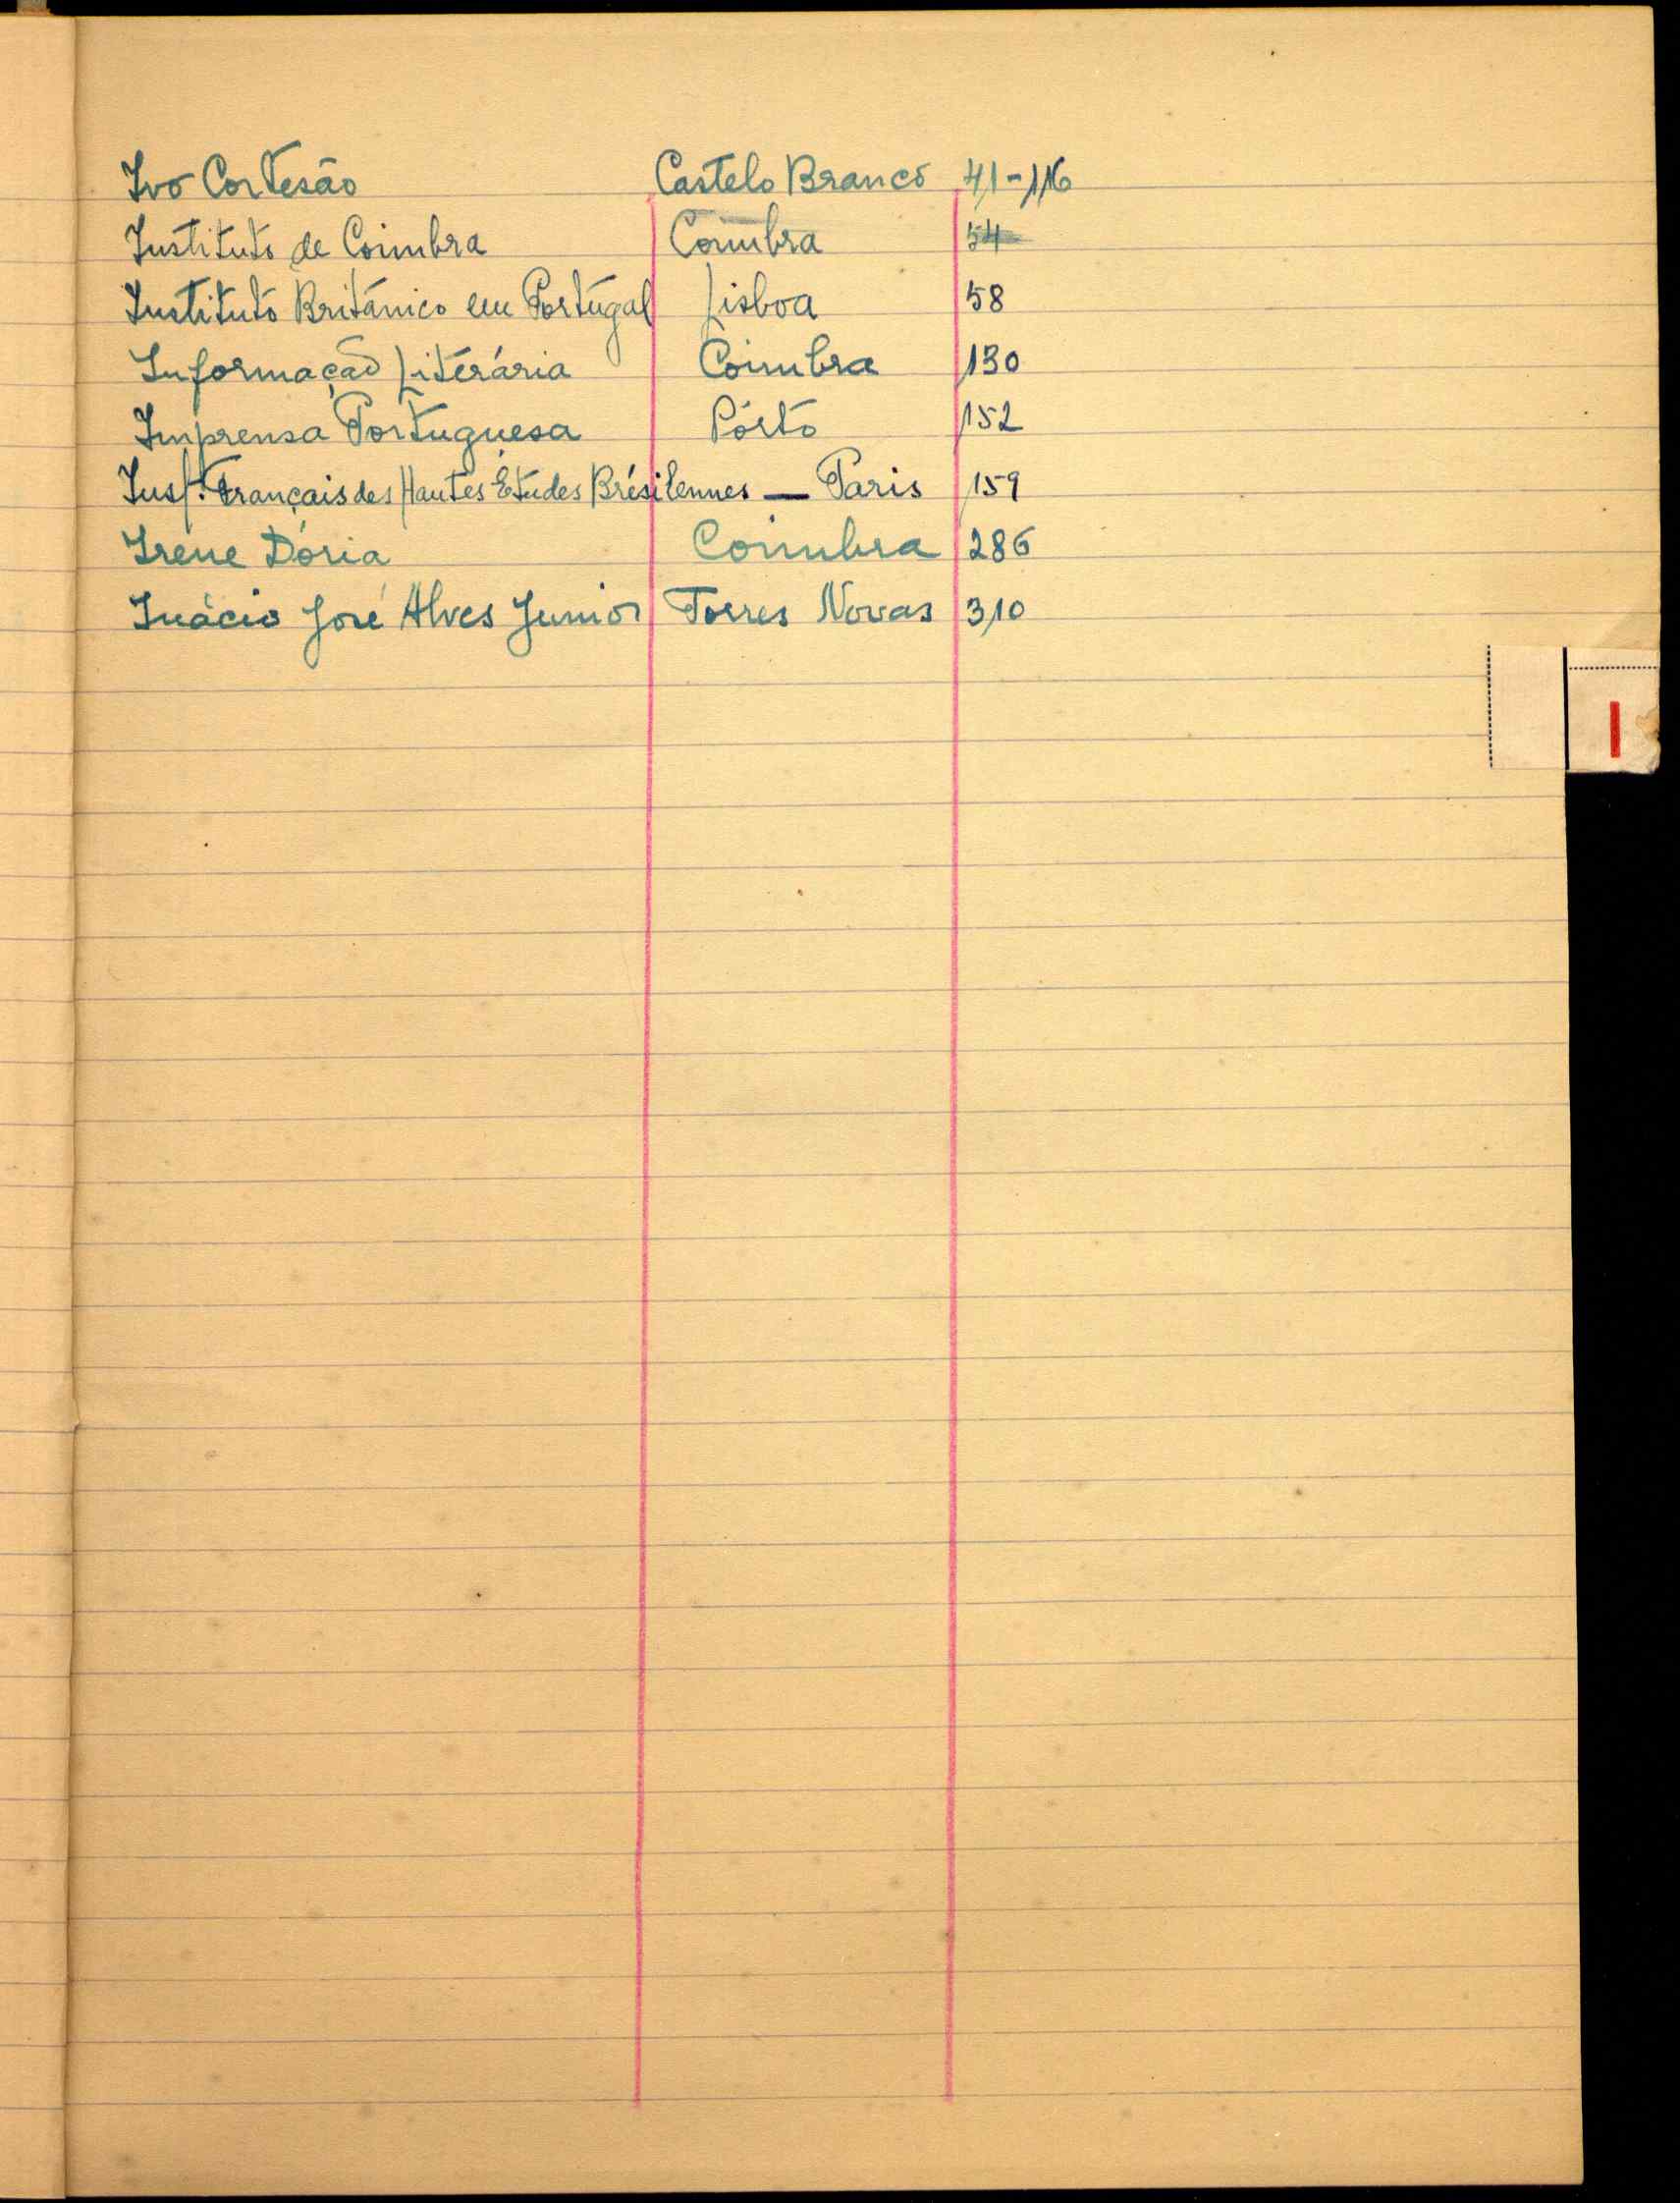 Ivo Cortesão Castelo Branco 41-116
Instituto de Coimbra Coimbra 54
Instituto Britânico em Portugal Lisboa 58
Informação Literária Coimbra 130
Imprensa Portuguesa Pôrto 152
Inst. Français des Hautes Études Brésilennes — Paris 159
Irene Dória Coimbra 286
Inácio José Alves Junior Torres Novas 310
I